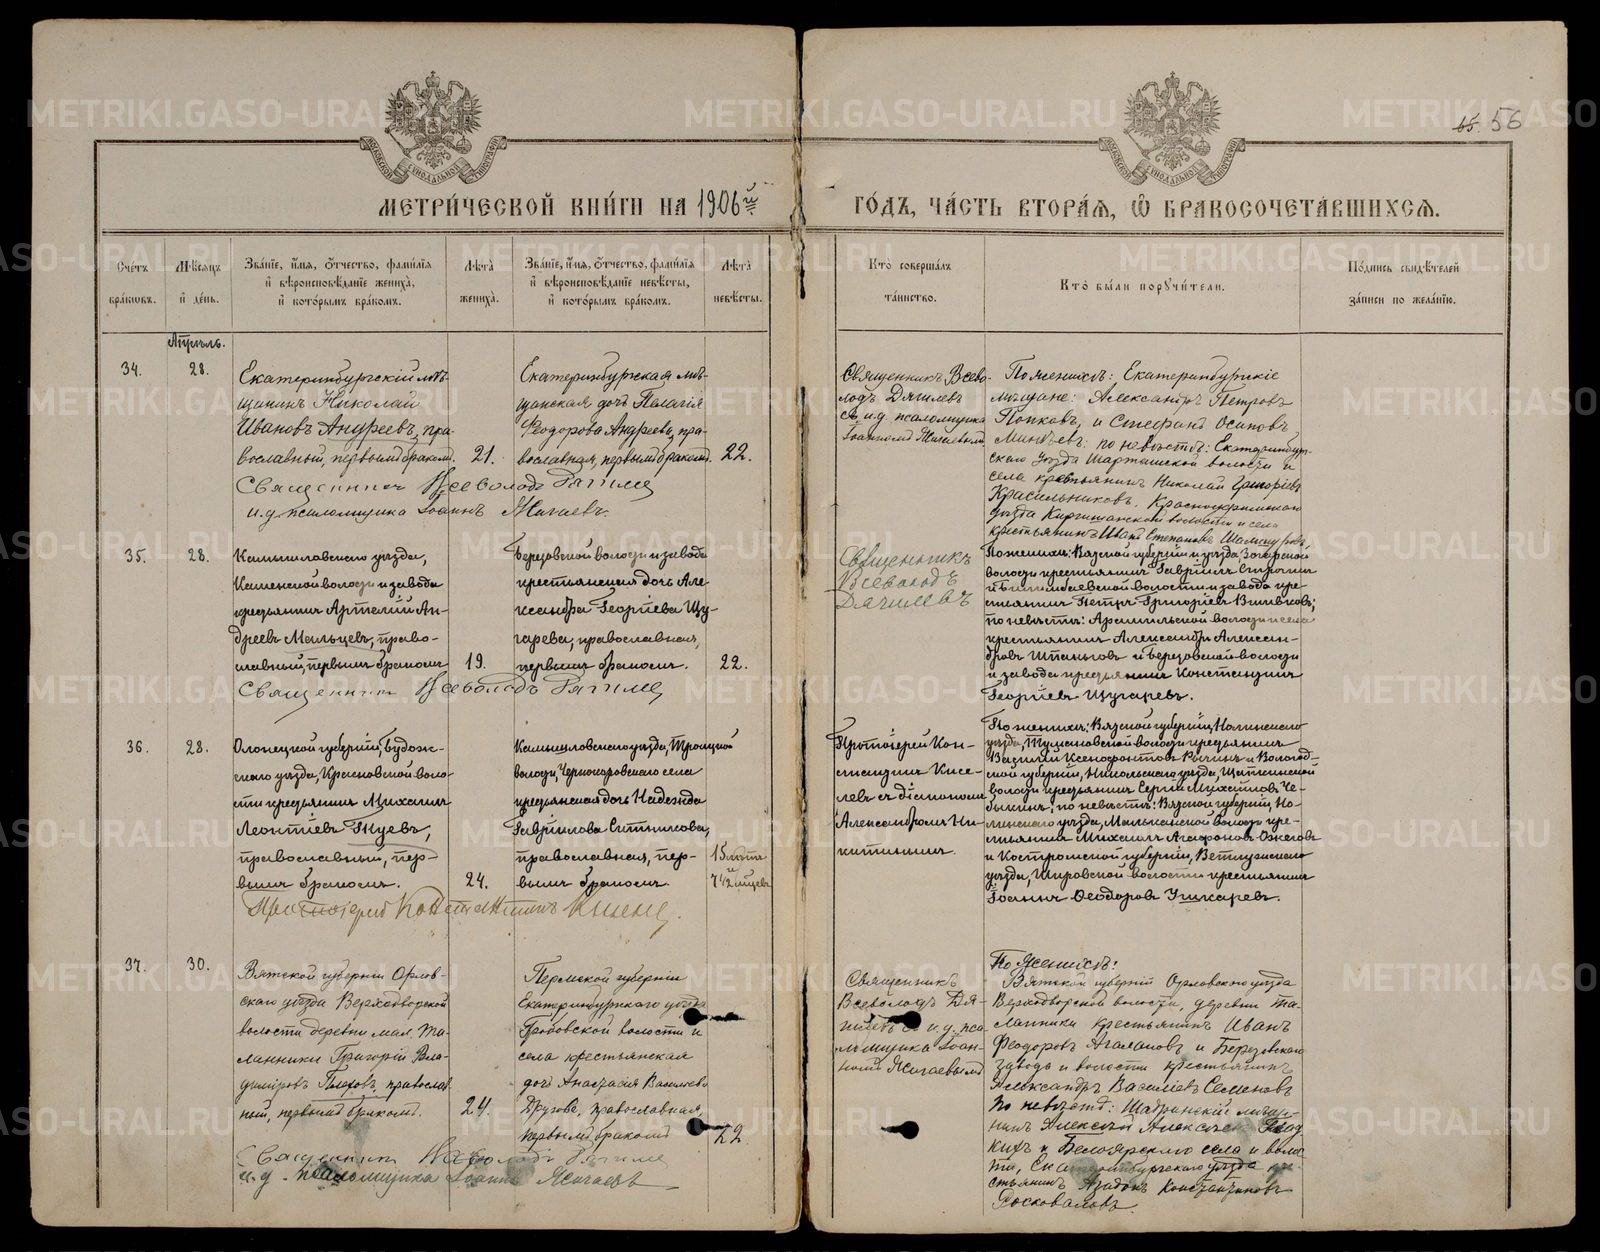 65. 56
МЕТРИ́ЧЕСКОЙ КНИ́ГИ НА 1906й
ГО́ДЪ, ЧА́СТЬ ВТОРА́Я, Ѡ БРАКОСОЧЕТА́ВШИХСЯ.
Сче́тъ бра́ковъ.
Мѣ́сяцъ и́ де́нь.
Зва́нїе, и́мя, о́тчество, фами́лїя и вѣроисповѣ́данїе жениха̀, и кото́рымъ бра́комъ.
Лѣ́та жениха̀.
Зва́нїе, и́мя, о́тчество, фами́лїя и вѣроисповѣ́данїе невѣ́сты, и кото́рымъ бра́комъ.
Лѣ́та невѣ́сты.
Кто̀ соверша́лъ та́инство.
Кто̀ бы́ли поручи́тели.
По́дпись свидѣ́телей за́писи по жела́нїю.
Апрѣль.
34.
28.
Екатеринбургскій мѣ-
щанинъ Николай
Ивановъ Андреевъ, пра-
вославный, первымъ бракомъ.
21.
Екатеринбургская мѣ-
щанская дочь Пелагія
Феодорова Андреева, пра-
вославная, первымъ бракомъ.
22.
Священникъ Всево-
лодъ Дягилевъ
съ и.д. псаломщика
Іоанномъ Жигаевымъ
По женихѣ: Екатеринбургскіе
мѣщане: Александръ Петровъ
Попковъ, и Стефанъ Осиповъ
по невѣстѣ: Екатеринбург-
скаго уѣзда Шарташской волости и
села крестьянинъ Николай Григорьевъ
Красильниковъ, Красноуфимскаго
уѣзда Киргишанской волости и села
крестьянинъ Иванъ Степановъ
Священникъ Всеволодъ Дягилев
и.д. псаломщика Іоаннъ Жигаевъ.
35.
28.
Камышловскаго уѣзда,
Каменской волости и завода
крестьянинъ Артемій Ан-
дреевъ Мальцевъ, право-
славный, первымъ бракомъ
19.
Березовской волости и завода
крестьянская дочь Але-
ксандра Георгіева Щу-
гарева, православная,
первымъ бракомъ.
22.
Священникъ
Всеволодъ
Дягилевъ
По женихѣ: Вятской губерніи и уѣзда
волости крестьянинъ Гавріилъ
и Билимбаевской волости и завода кре-
стьянинъ Петръ Григорьевъ
по невѣстѣ: Арамильской волости и села
крестьянинъ Александръ Алексан-
дровъ и Березовской волости
и завода крестьянинъ Константинъ
Георгіевъ Щугаревъ.
Священникъ Всеволодъ Дягилев
36.
28.
Олонецкой губерніи, Пудож-
скаго уѣзда, Красновской воло-
сти крестьянинъ Михаилъ
Леонтіевъ
православный, пер-
вымъ бракомъ.
24.
Камышловскаго уѣзда, Троицкой
волости, Чернокоровскаго села
крестьянская дочь Надежда
Гавріилова Ситникова,
православная, пер-
вымъ бракомъ.
15 лѣтъ
и
7½ мѣсяцевъ
Протоіерей Кон-
стантинъ Кисе-
левъ съ діакономъ
Александромъ Ни-
китинымъ.
По женихѣ: Вятской губерніи, Нолинскаго
уѣзда, Тумановской волости крестьянинъ
Василій Ксенофонтовъ и Вологод-
ской губерніи, Никольскаго уѣзда, Щеткинской
волости крестьянинъ Сергій Михайловъ Че-
быкинъ; по невѣстѣ: Вятской губерніи, Но-
линскаго уѣзда, Малканской волости кре-
стьянинъ Михаилъ Агафоновъ Ожеговъ
и Костромской губерніи, Ветлужскаго
уѣзда, волости крестьянинъ
Іоаннъ Феодоровъ
Протоіерей Константинъ Киселев.
37.
30.
Вятской губерніи Орлов-
скаго уѣзда Верходворской
волости деревни мал. Та-
ланники Григорій Вла-
димировъ православ-
ный, первымъ бракомъ.
24.
Пермской губерніи
Екатеринбургскаго уѣзда
Гробовской волости и
села крестьянская
дочь Анастасія Васильева
Другова, православная,
первымъ бракомъ
22.
Священникъ
Всеволодъ Дя-
гилевъ съ и.д. пса-
ломщика Іоан-
номъ Жигаевымъ
По женихѣ:
Вятской губерніи Орловскаго уѣзда
Верходворской волости, деревни Та-
ланники крестьянинъ Иванъ
Феодоровъ и Березовскаго
завода и волости крестьянинъ
Александръ Васильевъ Семеновъ
По невѣстѣ: Шадринскій мѣща-
нинъ Алексѣй Алексѣевъ
и Белоярскаго села и волос-
ти, Екатеринбургскаго уѣзда кре-
стьянинъ Константиновъ
Священникъ Всеволодъ Дягилев
и.д. псаломщика Іоаннъ Жигаевъ